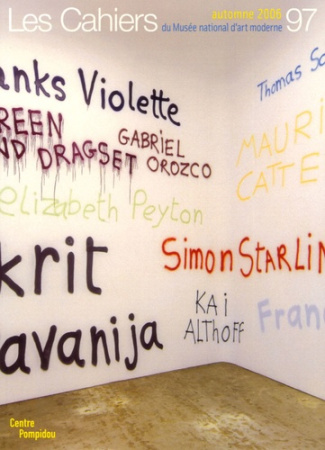 Les Cahiers
automne 2006
du Musée national d'art moderne
97
anks Violette
REEN
ND DRAGSET
GABRIEL
OROZCO
Thomas Sc
MAURI
CATTE
elizabeth Peyton
krit
avanija
Simon STARLIN
KAi
ALTHoff
Franc
Centre
Pompidou